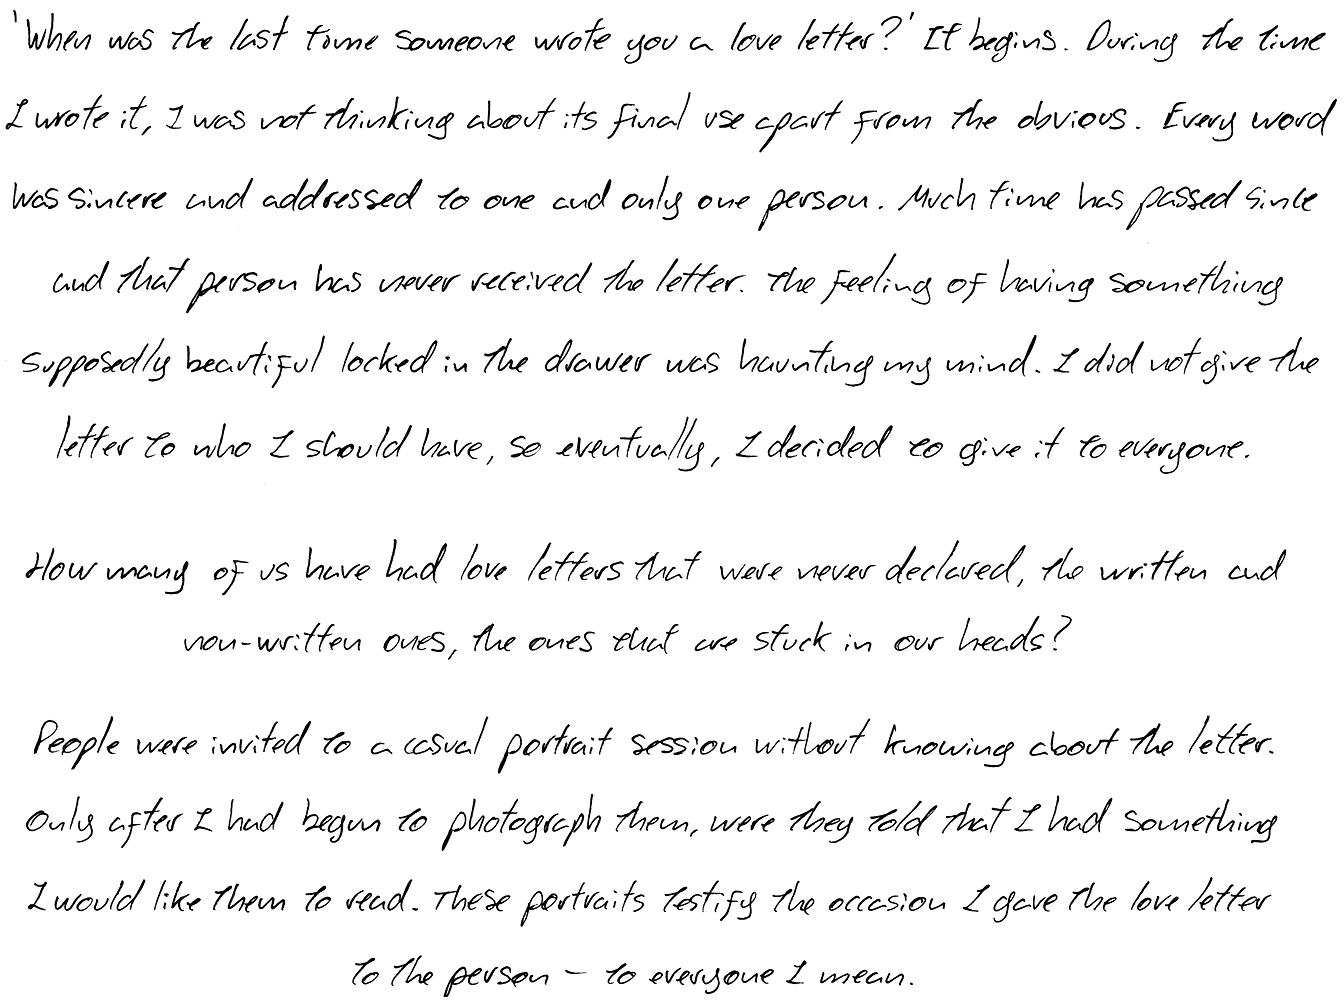 'When was the last time someone wrote you a love letter?' It begins. During the time
I wrote it, I was not thinking about its final use apart from the obvious. Every word
was sincere and addressed to one and only one person. Much time has passed since
and that person has never received the letter. The feeling of having something
supposedly beautiful locked in the drawer was haunting my mind. I did not give the
letter to who I should have, so eventually, I decided to give it to everyone.
How many of us have had love letters that were never declared, the written and
non-written ones, the ones that are stuck in our heads?
People were invited to a casual portrait session without knowing about the letter.
Only after I had begun to photograph them, were they told that I had something
I would like them to read. These portraits testify the occasion I gave the love letter
to the person – to everyone I mean.